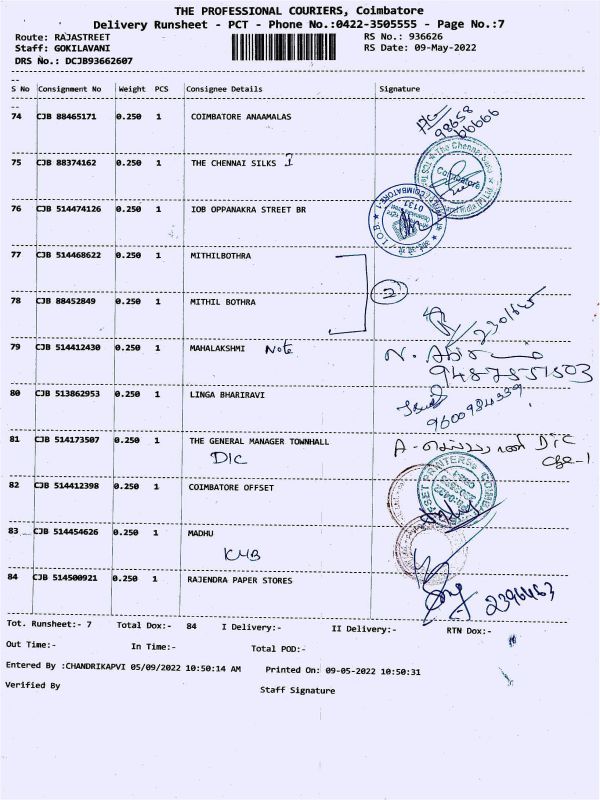 THE PROFESSIONAL COURIERS, Coimbatore
Delivery Runsheet - PCT - Phone No.:0422-3505555 - Page No.:7
Route: RAJASTREET RS No.: 936626
Staff: GOKILAVANI RS Date: 09-May-2022
DRS No.: DCJB93662607
S No Consignment No Weight PCS Consignee Details Signature
74 CJB 88465171 0.250 1 COIMBATORE ANAAMALAS
98658
66666
75 CJB 88374162 0.250 1 THE CHENNAI SILKS 1
The Chennai Silks
Coimbatore
76 CJB 514474126 0.250 1 IOB OPPANAKRA STREET BR
I.O.B
COIMBATORE-1
0131
77 CJB 514468622 0.250 1 MITHILBOTHRA
2
78 CJB 88452849 0.250 1 MITHIL BOTHRA
2301625
79 CJB 514412430 0.250 1 MAHALAKSHMI Note
9487551503
80 CJB 513862953 0.250 1 LINGA BHARIRAVI
9600984339
81 CJB 514173507 0.250 1 THE GENERAL MANAGER TOWNHALL
DIC
DIC
82 CJB 514412398 0.250 1 COIMBATORE OFFSET
83 CJB 514454626 0.250 1 MADHU
KMB
84 CJB 514500921 0.250 1 RAJENDRA PAPER STORES
2396463
Tot. Runsheet:- 7 Total Dox:- 84 I Delivery:- II Delivery:- RTN Dox:-
Out Time:- In Time:- Total POD:-
Entered By :CHANDRIKAPVI 05/09/2022 10:50:14 AM Printed On: 09-05-2022 10:50:31
Verified By Staff Signature